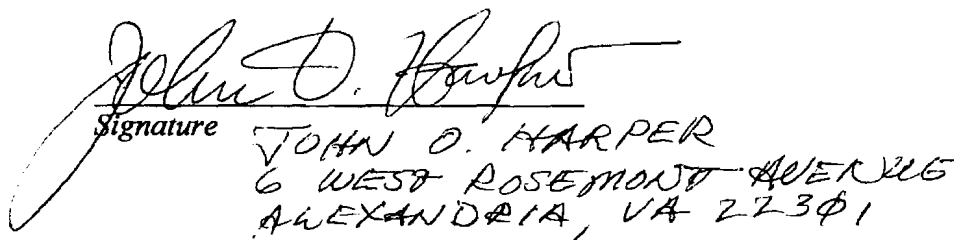 John O. Harper
Signature
JOHN O. HARPER
6 WEST ROSEMONT AVENUE
ALEXANDRIA, VA 22301